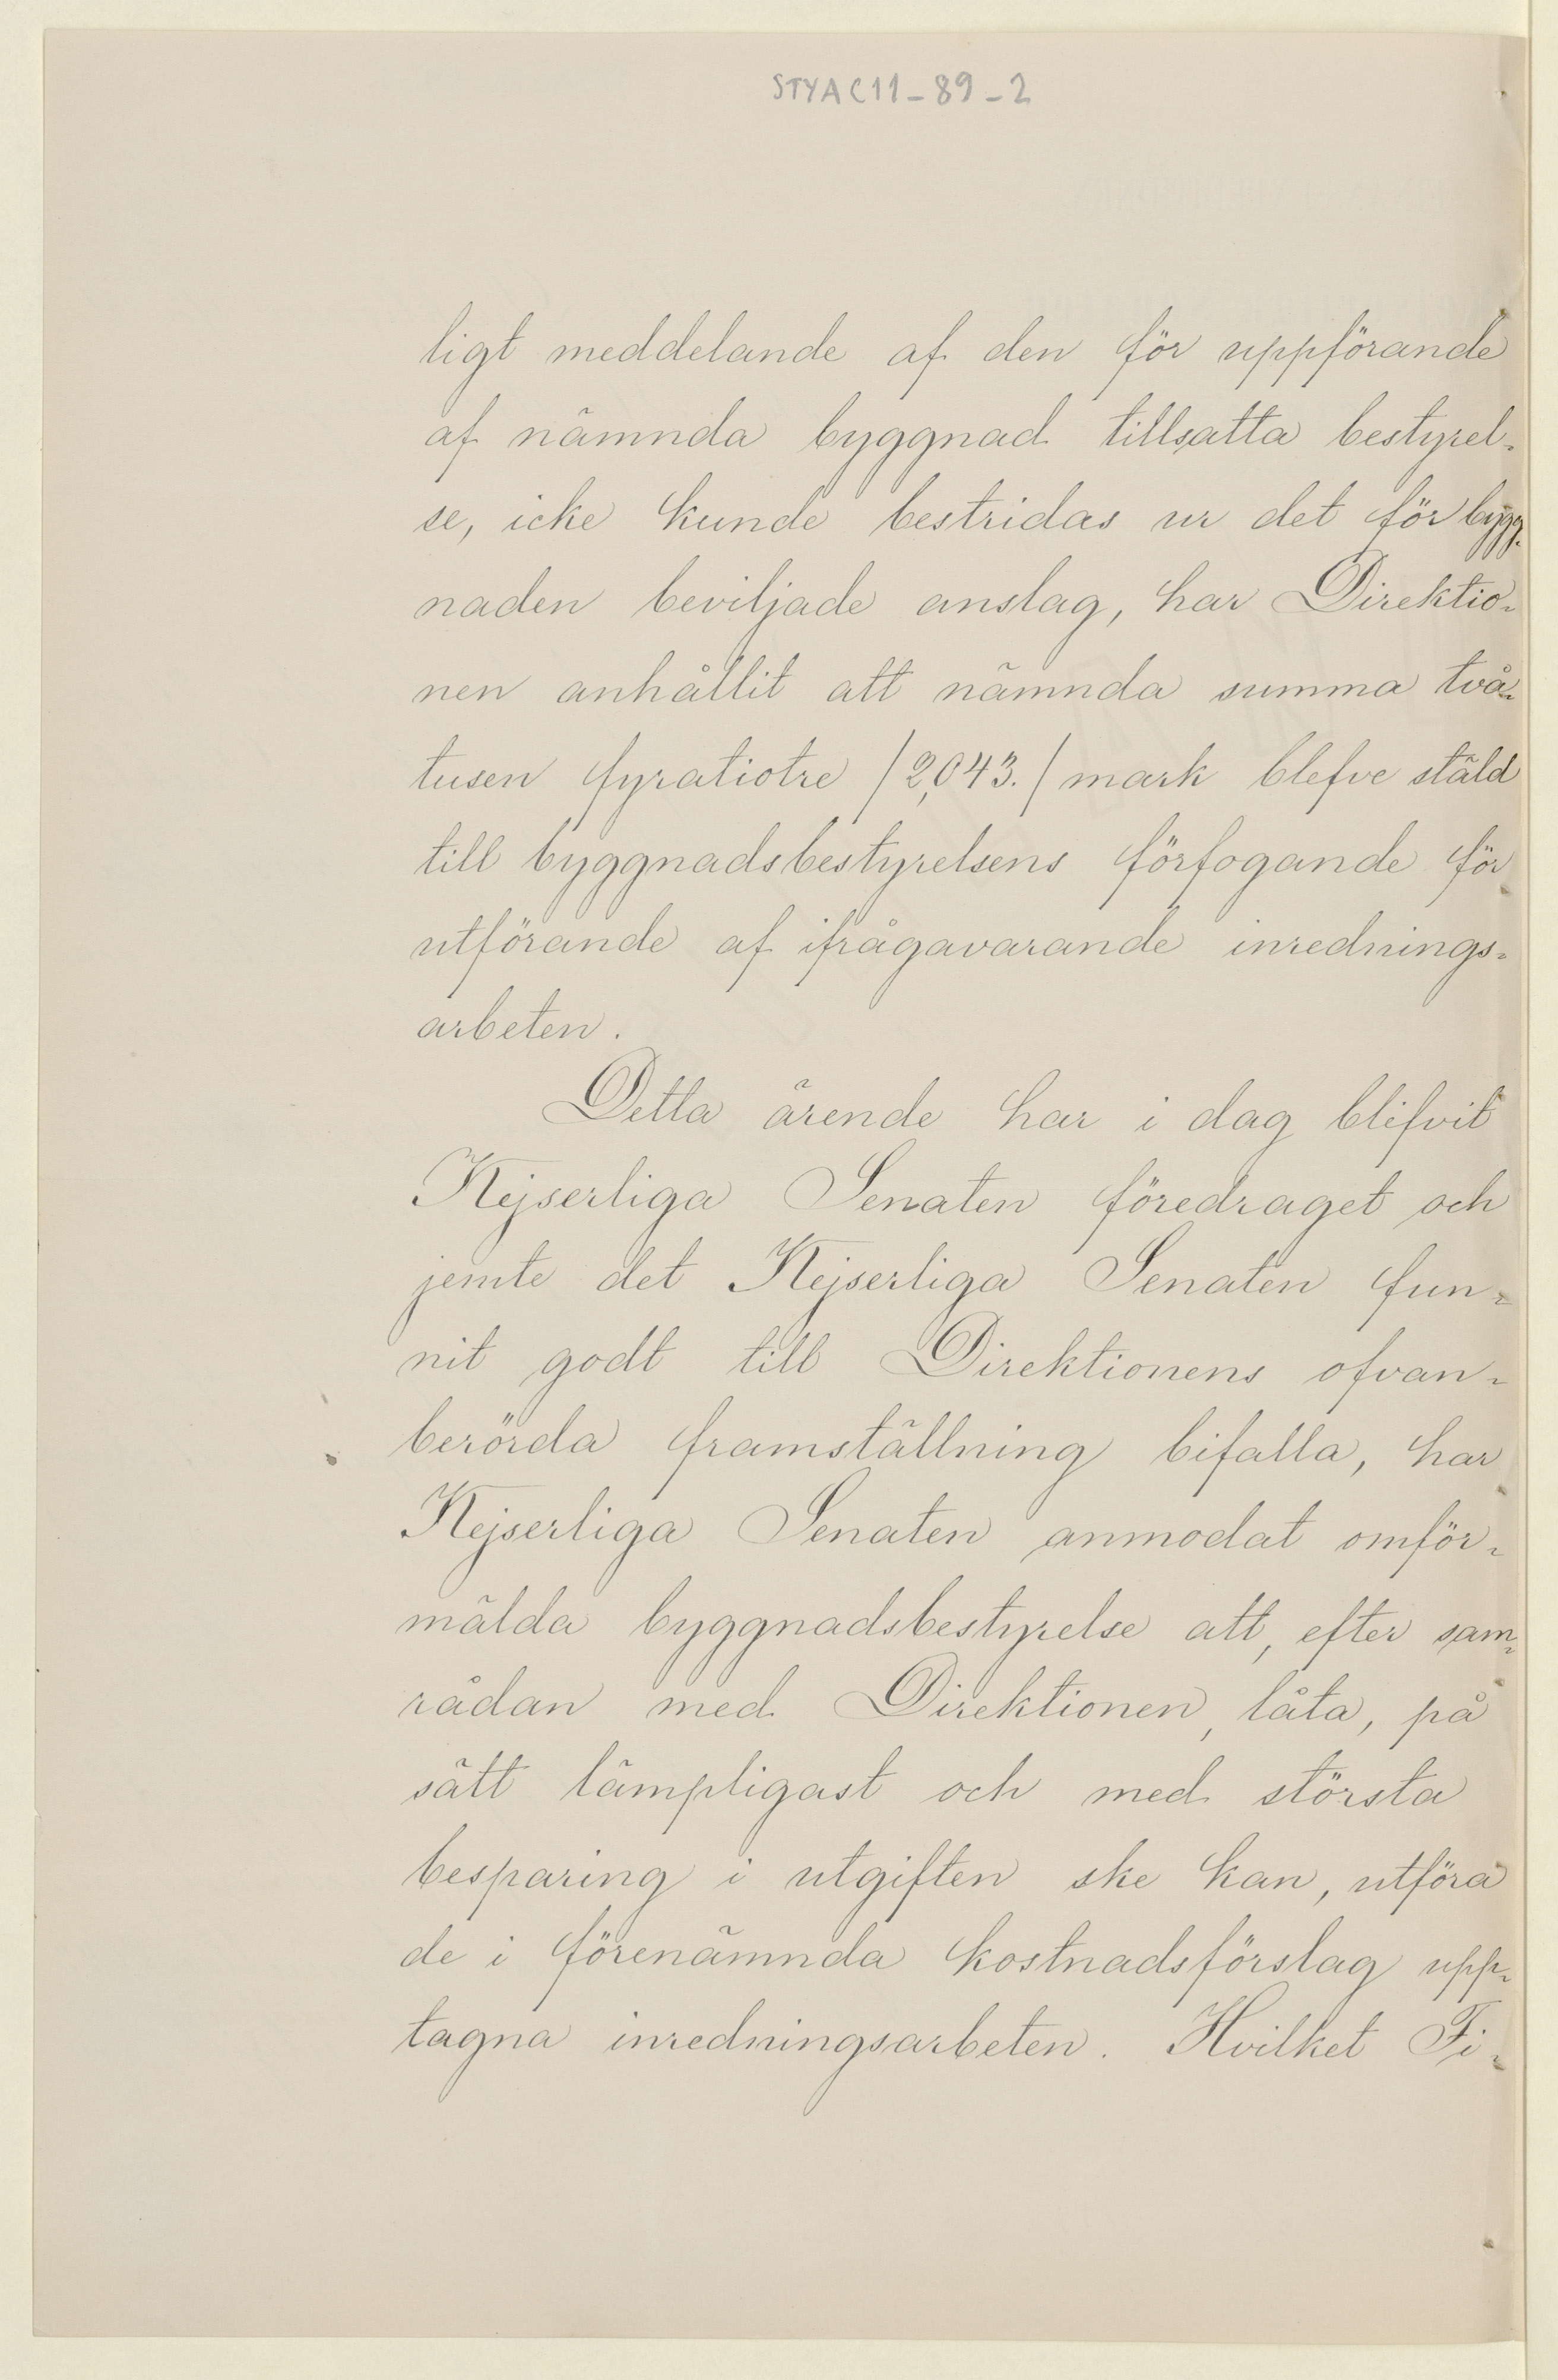 STYA C11-89-2
ligt meddelande af den för uppförande
af nämnda byggnad tillsatta bestyrel-
se, icke kunde bestridas ur det för bygg-
naden beviljade anslag, har Direktio-
nen anhållit att nämnda summa två-
tusen fyratiotre /2,043./ mark blefve stäld
till byggnadsbestyrelsens förfogande för
utförande af ifrågavarande inrednings-
arbeten.
Detta ärende har i dag blifvit
Kejserliga Senaten föredraget och
jemte det Kejserliga Senaten fun-
nit godt till Direktionens ofvan-
berörda framställning bifalla, har
Kejserliga Senaten anmodat omför-
mälda byggnadsbestyrelse att, efter sam-
rådan med Direktionen, låta, på
sätt lämpligast och med största
besparing i utgiften ske kan, utföra
de i förenämnda kostnadsförslag upp-
tagna inredningsarbeten. Hvilket Fi-